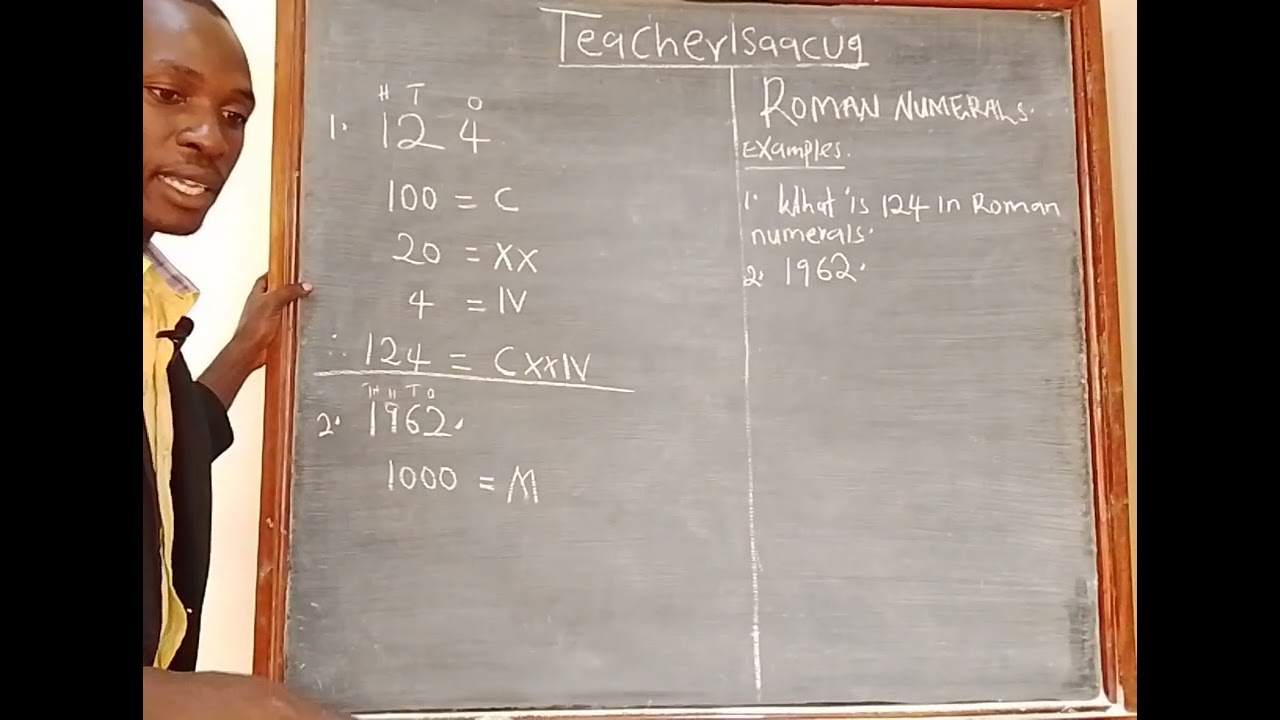 TeacherIsaacug
H T O
1. 124
100 = C
20 = XX
4 = IV
∴ 124 = CXXIV
TH H T O
2. 1962.
1000 = M
ROMAN NUMERALS.
Examples.
1. What is 124 in Roman
numerals.
2. 1962.